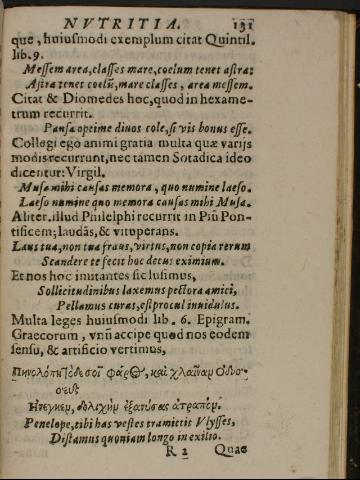 NVTRITIA. 131
que, huiusmodi exemplum citat Quintil.
lib. 9.
Messem area, classes mare, coelum tenet astra:
Astra tenet coelũ, mare classes, area messem.
Citat & Diomedes hoc, quod in hexame-
trum recurrit.
Pansa optime diuos cole, si vis bonus esse.
Collegi ego animi gratia multa quæ varijs
modis recurrunt, nec tamen Sotadica ideo
dicentur: Virgil.
Musa mihi causas memora, quo numine laeso.
Laeso numine quo memora causas mihi Musa.
Aliter. illud Philelphi recurrit in Piũ Pon-
tificem; laudās, & vituperans.
Laus tua, non tua fraus, virtus, non copia rerum
Scandere te fecit hoc decus eximium.
Et nos hoc imitantes sic lusimus,
Sollicitudinibus laxemus pectora amici,
Pellamus curas, est procul inuidulus.
Multa leges huiusmodi lib. 6. Epigram.
Graecorum, vnū accipe quod nos eodem
sensu, & artificio vertimus,
φάρος, καὶ χλαῖναν Ὀδυσ-
σεὺς
Ἤνεγκεν, δολιχὴν ἐξανύσας ἀτραπόν.
Penelope, tibi has vestes tramittit Vlysses,
Distamus quoniam longo in exilio.
R 2 Quae